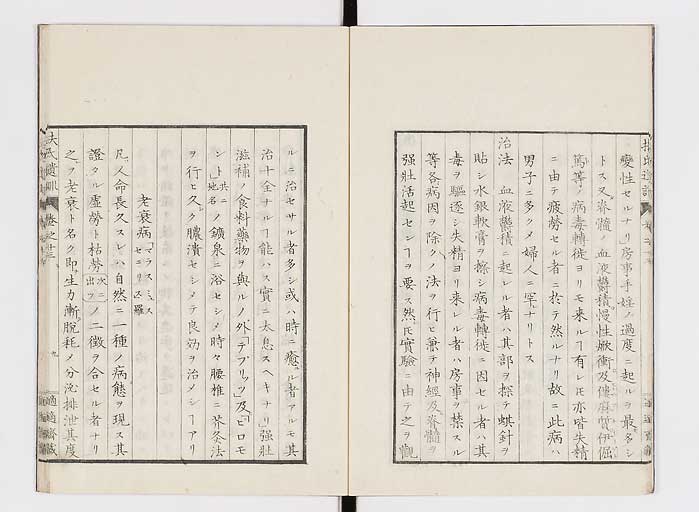 變性セルナリ房事手婬ノ過度ニ起ルヲ最多シ
トス又脊髓ノ血液欝積慢性焮衝及僂麻質伊倔
篤等ノ病毒轉徙ヨリモ来ルヿ有レㇳモ亦皆失精
ニ由テ疲勞セル者ニ於テ然ルナリ故ニ此病ハ
男子ニ多クメ婦人ニ罕ナリトス
治法 血液欝積ニ起レル者ハ其部ヲ探テ蜞針ヲ
貼シ水銀軟膏ヲ擦シ病毒轉徙ニ因セル者ハ其
毒ヲ驅逐シ失精ヨリ来レル者ハ房事ヲ禁スル
等各病因ヲ除クノ法ヲ行ヒ兼テ神經及脊髓ヲ
強壯活起セシヿヲ要ス然𪜈實驗ニ由テ之ヲ觀
ルニ治セサル者多シ或ハ時ニ癒ル者アルモ其
治十全ナルヿ能ハス實ニ太息スヘキナリ強壯
滋補ノ食料藥物ヲ與ルノ外テプリッツ及ヒロモ
シ共ニ地名ノ鑛泉ニ浴セシメ時々腰椎ニ芥灸法
ヲ行ヒ久ク膿潰セシメテ良効ヲ治メシヿアリ
老衰病 マラスミス セニリス 羅
凡ソ人命長久スレハ自然ニ一種ノ病態ヲ現ス其
證タル虚勞ト枯勞 次ニ出ツ ノ二徴ヲ合セル者ナリ
之ヲ老衰ト名ク即生力漸脱耗ノ分泌排泄其度
扶氏遺訓 卷之十三 九 適適齋藏